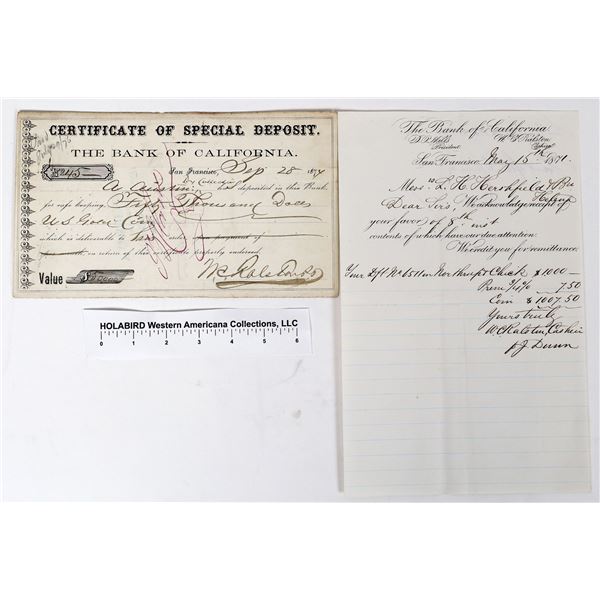 CERTIFICATE OF SPECIAL DEPOSIT.
OF
THE BANK OF CALIFORNIA.
San Francisco, Sep 28 1874
A Austin has deposited in this Bank
for safe keeping Five Thousand Dolls
U S Gold Coin
which is deliverable to
on return of this certificate properly endorsed.
Value $5000
HOLABIRD Western Americana Collections, LLC
0 1 2 3 4 5 6
The Bank of California
D. O. Mills President
W. C. Ralston Cashier
San Francisco May 15th 1871.
Mess rs L. H. Hershfield & Bro
Dear Sirs, We acknowledge receipt of
your favor of 8th inst
contents of which have our due attention.
We credit you for remittance.
Your Dft No on Northrup & Chick $1000—
Prem 7.50
Coin $1007.50
Yours truly
W C Ralston, Cashier
p J Dunn